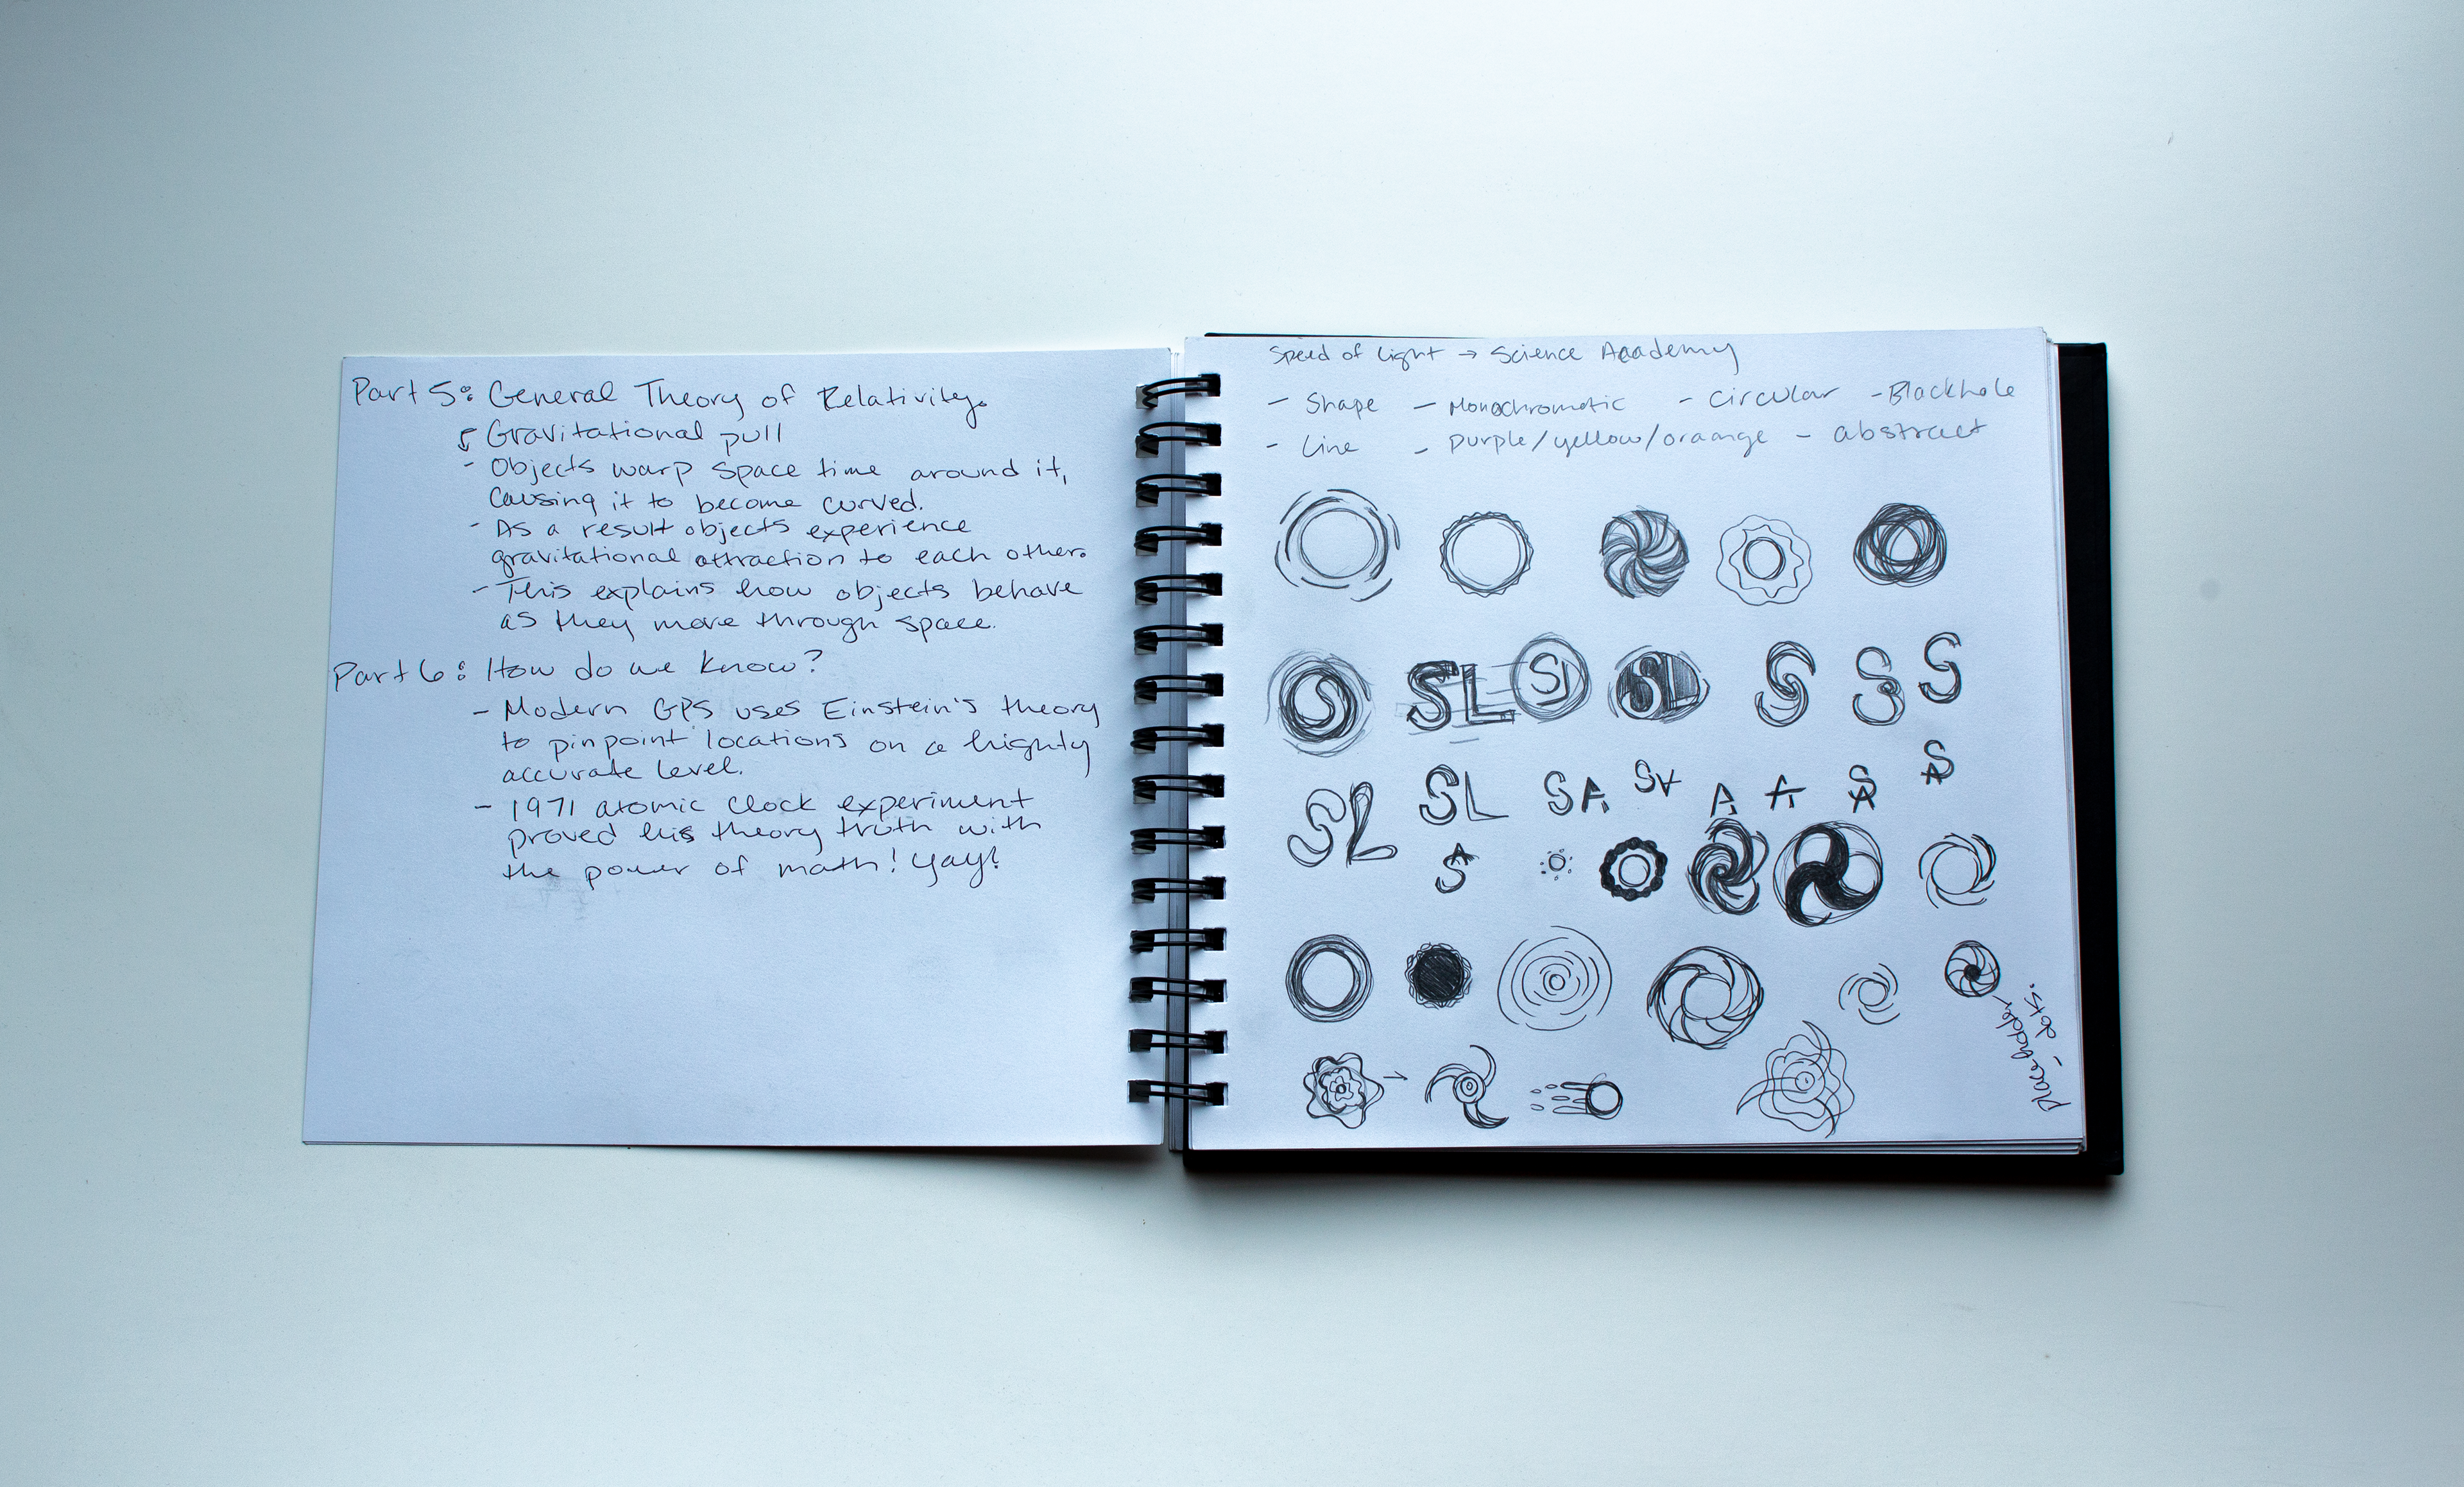 Part 5: General Theory of Relativity.
Gravitational pull
- Objects warp space time around it,
causing it to become curved.
- As a result objects experience
gravitational attraction to each other.
- This explains how objects behave
as they move through space.
Part 6: How do we know?
- Modern GPS uses Einstein's theory
to pinpoint locations on a highly
accurate level.
- 1971 atomic clock experiment
proved his theory truth with
the power of math! Yay!
Speed of Light → Science Academy
- Shape - Monochromatic - circular - Blackhole
- Line - purple/yellow/oraange - abstract
S SL SL SL S S S
SL SL SA SA A A SA SA
SA
placeholder
- dots.